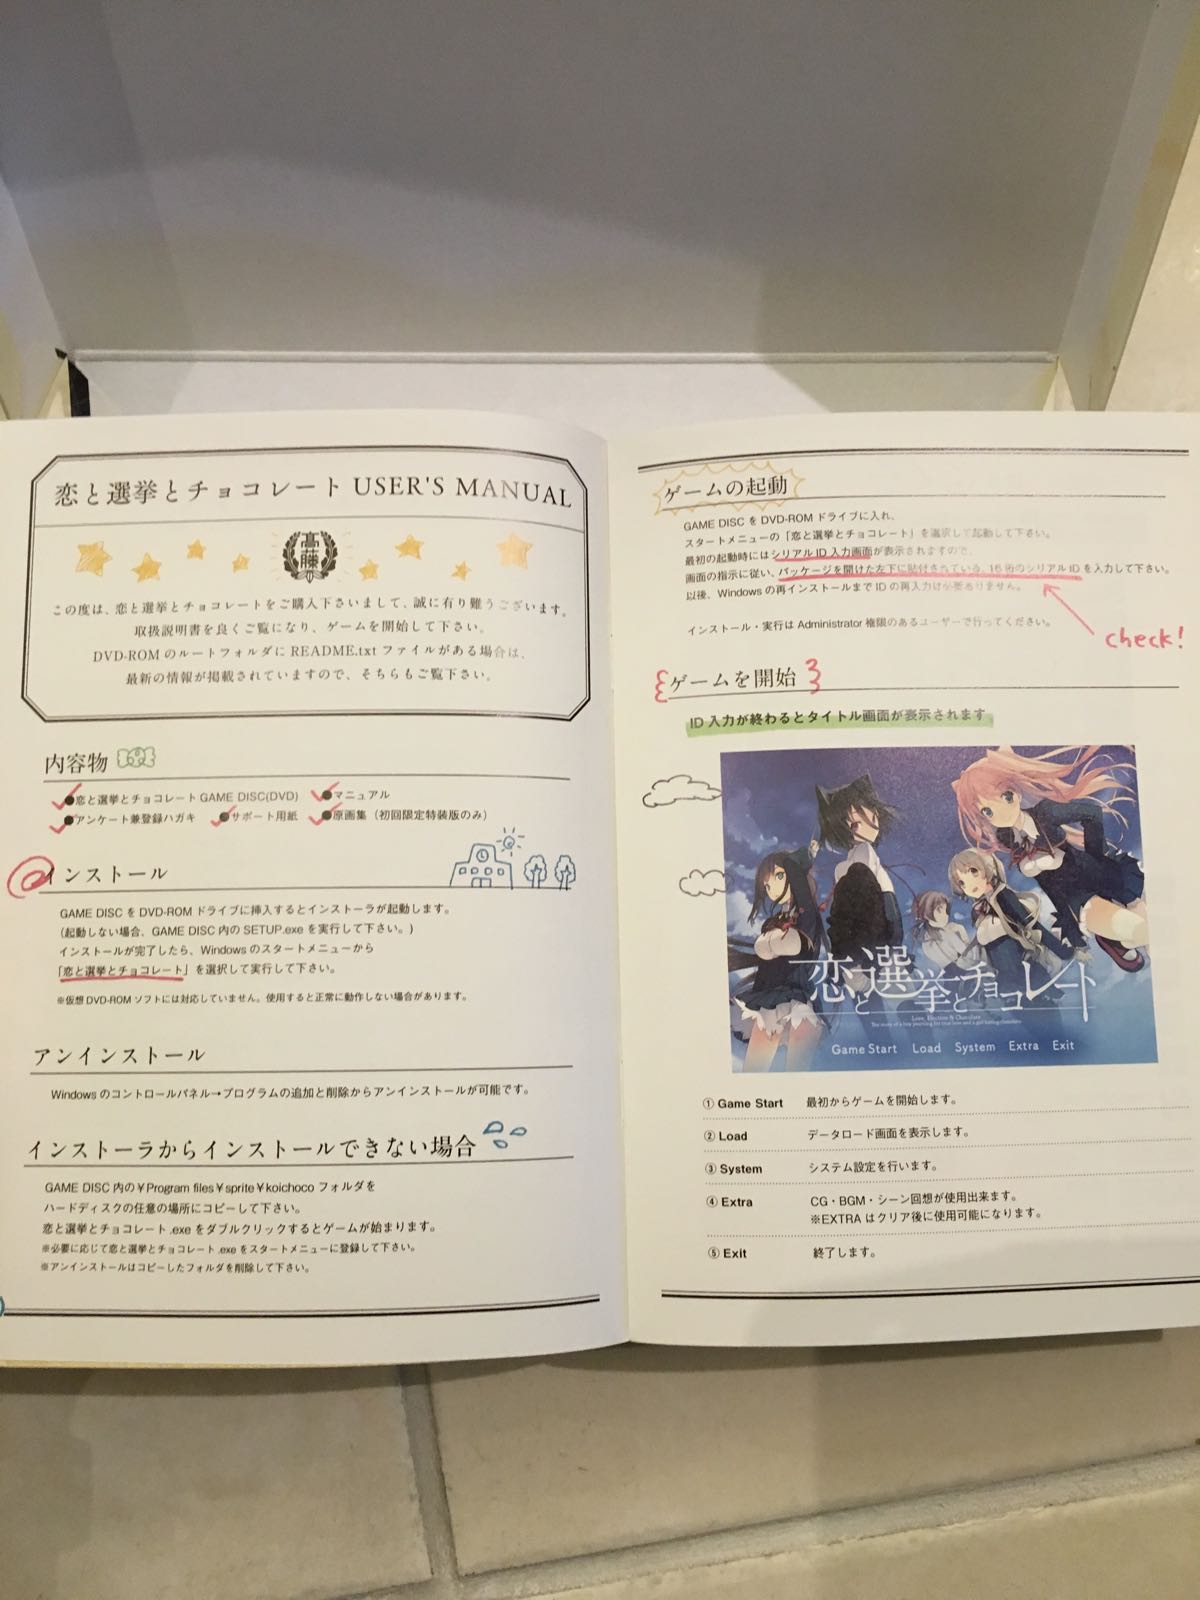 恋と選挙とチョコレート USER'S MANUAL
高藤
この度は、恋と選挙とチョコレートをご購入下さいまして、誠に有り難うございます。
取扱説明書を良くご覧になり、ゲームを開始して下さい。
DVD-ROMのルートフォルダにREADME.txtファイルがある場合は、
最新の情報が掲載されていますので、そちらもご覧下さい。
内容物
●恋と選挙とチョコレート GAME DISC(DVD) ●マニュアル
●アンケート兼登録ハガキ ●サポート用紙 ●原画集（初回限定特装版のみ）
インストール
GAME DISCをDVD-ROMドライブに挿入するとインストーラが起動します。
(起動しない場合、GAME DISC内のSETUP.exeを実行して下さい。)
インストールが完了したら、Windowsのスタートメニューから
「恋と選挙とチョコレート」を選択して実行して下さい。
※仮想DVD-ROMソフトには対応していません。使用すると正常に動作しない場合があります。
アンインストール
Windowsのコントロールパネル→プログラムの追加と削除からアンインストールが可能です。
インストーラからインストールできない場合
GAME DISC内の￥Program files￥sprite￥koichocoフォルダを
ハードディスクの任意の場所にコピーして下さい。
恋と選挙とチョコレート.exeをダブルクリックするとゲームが始まります。
※必要に応じて恋と選挙とチョコレート.exeをスタートメニューに登録して下さい。
※アンインストールはコピーしたフォルダを削除して下さい。
ゲームの起動
GAME DISCをDVD-ROMドライブに入れ、
スタートメニューの「恋と選挙とチョコレート」を選択して起動して下さい。
最初の起動時にはシリアルID入力画面が表示されますので、
画面の指示に従い、パッケージを開けた左下に貼付されている、16桁のシリアルIDを入力して下さい。
以後、Windowsの再インストールまでIDの再入力は必要ありません。
インストール・実行はAdministrator権限のあるユーザーで行ってください。
check!
ゲームを開始
ID入力が終わるとタイトル画面が表示されます
恋と選挙とチョコレート
Love, Election & Chocolate
The story of a boy yearning for true love and a girl hating chocolate
Game Start Load System Extra Exit
① Game Start 最初からゲームを開始します。
② Load データロード画面を表示します。
③ System システム設定を行います。
④ Extra CG・BGM・シーン回想が使用出来ます。
※EXTRAはクリア後に使用可能になります。
⑤ Exit 終了します。